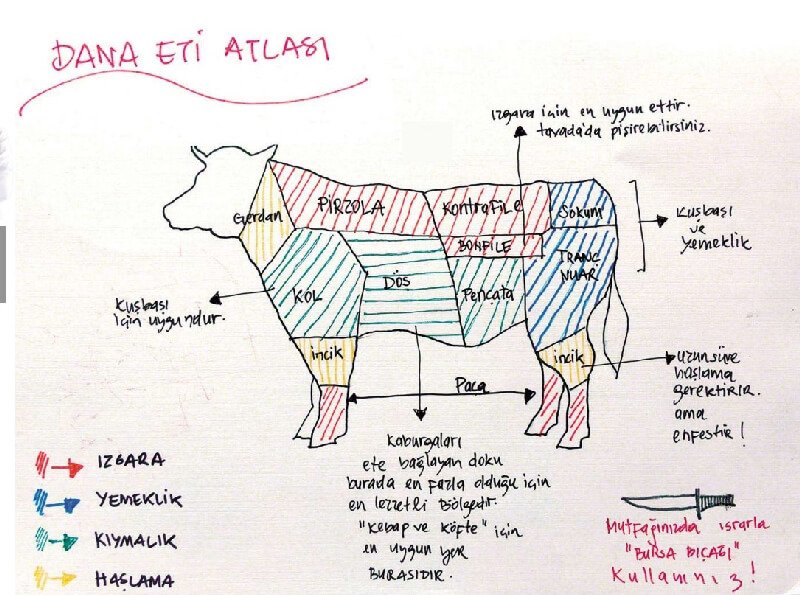 DANA ETİ ATLASI
ızgara için en uygun ettir.
tavada'da pişirebilirsiniz.
Gerdan
PİRZOLA
KontraFile
Sokum
BONFİLE
TRANÇ
NUAR
KOL
DÖŞ
Pencata
Kuşbaşı
ve
yemeklik
Kuşbaşı
için uygundur.
incik
incik
Paça
uzun süre
haşlama
gerektirir.
ama
enfestir!
Kaburgaları
ete bağlayan doku
burada en fazla olduğu için
en lezzetli bölgedir.
"Kebap ve Köfte" için
en uygun yer
BURASIDIR.
IZGARA
YEMEKLİK
KIYMALIK
HAŞLAMA
Mutfağınızda ısrarla
"BURSA BIÇAĞI"
Kullanınız!